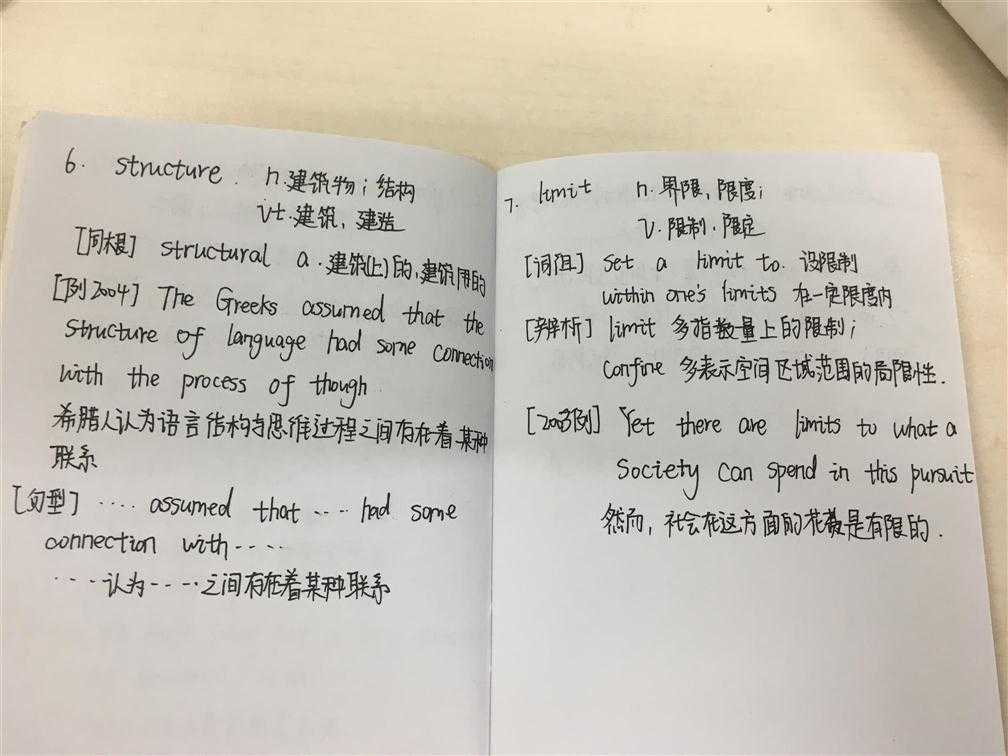 6. structure. n.建筑物；结构
vt.建筑，建造
[同根] structural a.建筑(上)的,建筑用的
[例2004] The Greeks assumed that the
structure of language had some connection
with the process of though
希腊人认为语言结构与思维过程之间存在着某种
联系
[句型] .... assumed that .... had some
connection with ....
....认为....之间存在着某种联系
7. limit n.界限,限度；
v.限制.限定
[词组] set a limit to. 设限制
within one's limits 在一定限度内
[辨析] limit 多指数量上的限制；
confine 多表示空间区域范围的局限性.
[2003例] Yet there are limits to what a
society can spend in this pursuit
然而，社会在这方面的花费是有限的.